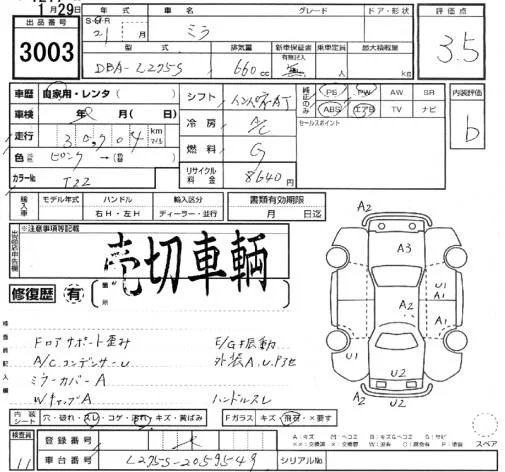 1月29日
出品番号
3003
年式 車名 グレード ドア・形状 評価点
S・H・R
21 月 ミラ
3.5
型式 排気量 新車保証書 乗車定員 最大積載量
有無記入
DBA-L275S 660cc 無 人 kg
車歴 自家用・レンタ( )
シフト インパネAT
純正のみ PS PW AW SR
ABS エアB TV ナビ
内装評価
b
車検 年 月( 日)
冷房 A/C
セールスポイント
走行 30,904 km マイル
燃料 G
色 ピンク →
カラーNo. T22
リサイクル料金 8640円
輸入車 モデル年式 ハンドル 輸入区分 書類有効期限
右H・左H ディーラー・並行 月 日迄
※注意事項等記載
売切車輌
修復歴 有 箇所
検査員記入欄
フロアサポート歪み
E/G振動
A/CコンデンサーU
外装A.U.P3他
ミラーカバーA
WキャップA
ハンドルスレ
内装シート 穴・破れ・スレ・コゲ・汚れ・キズ・黄ばみ Fガラス キズ・飛石・×要す
A2
A3
U1
A1
A2
A1
U1
U2
A2
スペア
検査員
11
登録番号
車台番号 L275S-2059549 シリアルNo.